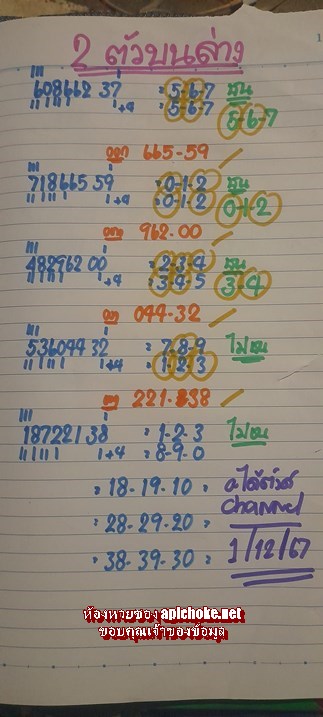 2 ตัวบนล่าง
608662 37 = 5-6-7 ชน
+4 = 5-6-7 5-6-7
ออก 665-59
718665 59 = 0-1-2 ชน
+4 = 0-1-2 0-1-2
ออก 962-00
482962 00 = 2-3-4 ชน
+4 = 3-4-5 3-4
ออก 044-32
536044 32 = 7-8-9 ไม่ชน
+4 = 1-2-3
ออก 221-38
187221 38 = 1-2-3 ไม่ชน
+4 = 8-9-0
= 18-19-10 =
channel
= 28-29-20 =
1/12/67
= 38-39-30 =
ห้องหวยของ apichoke.net
ขอบคุณเจ้าของข้อมูล